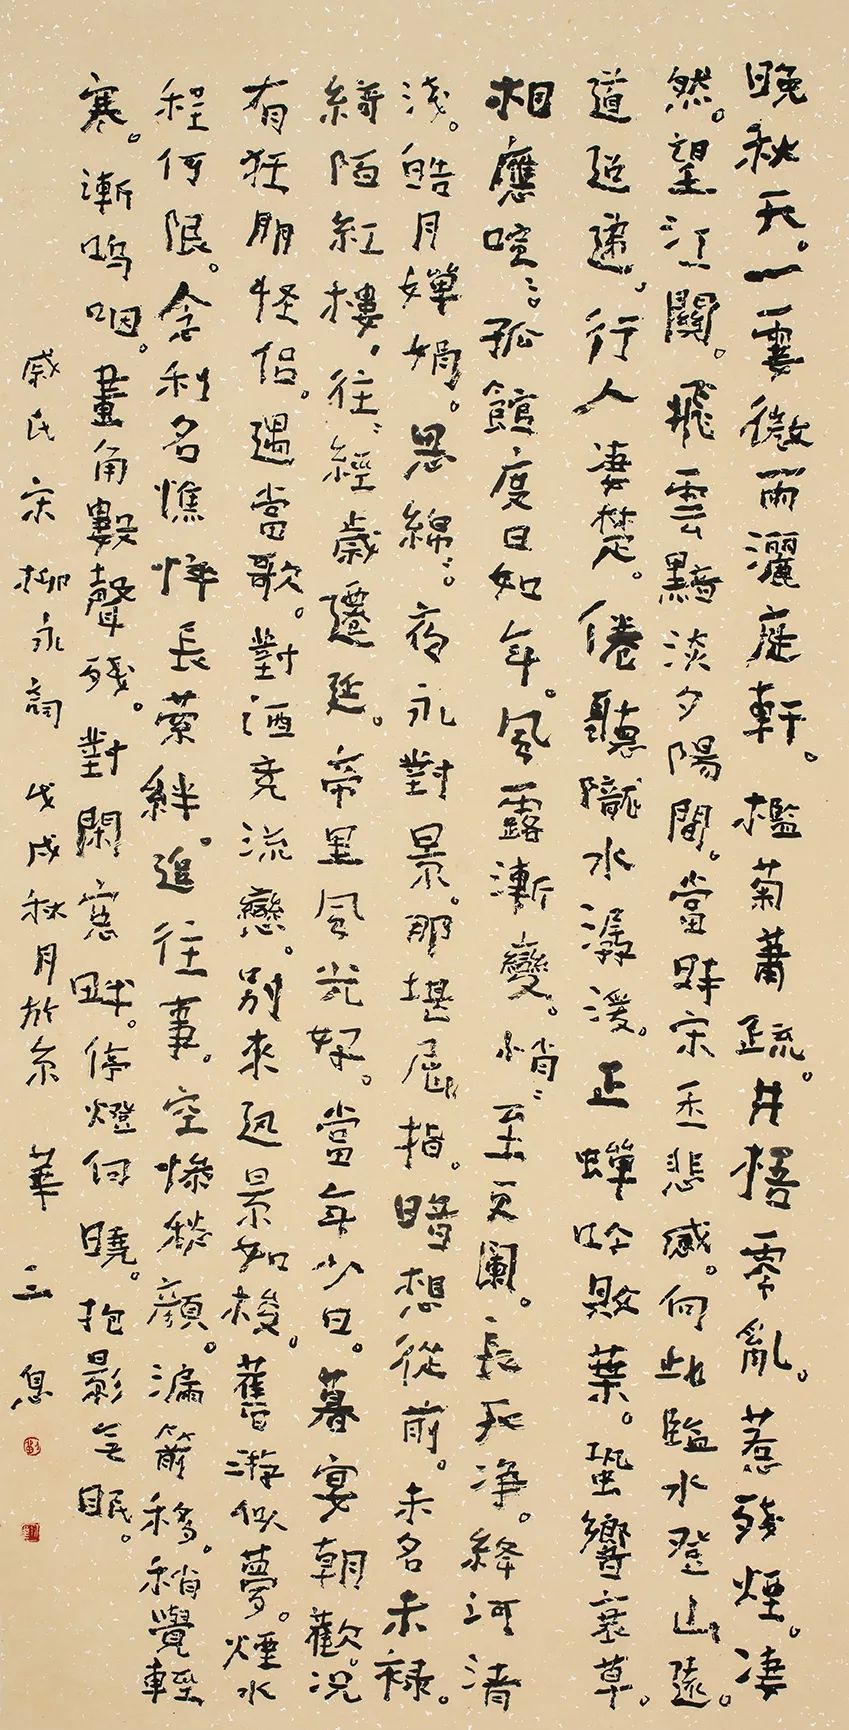 晚秋天。一霎微雨灑庭軒。檻菊蕭疏。井梧零亂。惹殘煙。淒
然。望江關。飛雲黯淡夕陽間。當時宋玉悲感。向此臨水登山。遠
道迢遞。行人淒楚。倦聽隴水潺湲。正蟬吟敗葉。蛩響衰草。
相應喧〻。孤館度日如年。風露漸變。悄〻至更闌。長天淨。絳河清
淺。皓月嬋娟。思綿〻。夜永對景。那堪屈指。暗想從前。未名未祿。
綺陌紅樓。往〻經歲遷延。帝里風光好。當年少日。暮宴朝歡。況
有狂朋怪侶。遇當歌。對酒竞流戀。別來迅景如梭。舊游似夢。煙水
程何限。念利名憔悴長縈絆。追往事。空慘愁顏。漏箭移。稍覺輕
寒。漸嗚咽。畫角數聲殘。對閑窗畔。停燈向曉。抱影无眠。
戚氏宋柳永詞 戊戌秋月於京 華 三 息